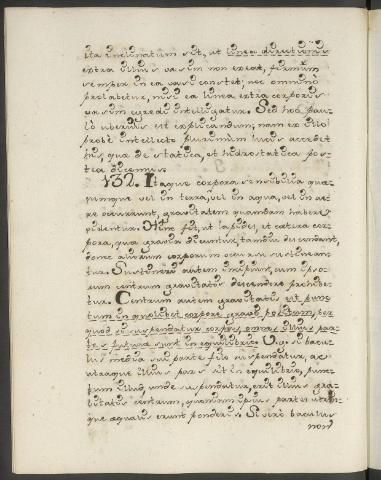 ita inclinatum sit, ut linea directionis
extra illius basim non exeat, firmum
semper in ea basi constet; nec omninò
prolabetur, nisi ea linea extra corporis
basim egredi intelligatur. Sed hoc pau-
lò uberius est explicandum; nam ex illo
probè intellecto plurimum lucis accedet
his, quae de statica, et hidrostatica pos-
tea dicemus.
132. Itaque corpora sensibilia quae-
cumque vel in terra, vel in aqua, vel in ae-
re occurrunt, gravitatem quamdam habere
videntur. Hinc fit, ut lapides, et caetera cor-
pora, quae gravia dicuntur, tamdiu descendant,
donec aliorum corporum occursu sustinean-
tur. Sustineri autem incipiunt, cum ipso-
rum centrum gravitatis descendere prohibe-
tur. Centrum autem gravitatis est punc-
tum in quolibet corpore gravi positum, per
quod si suspendatur corpus, omnes illius par-
tes futurae sunt in equilibrio. Vg. si bacu-
lus media sui parte filo suspendatur, ac
utraque illius pars sit in equilibrio, punc-
tum illud unde suspendatur, erit illius gra-
vitatis centrum, quoniam ipsius partes utrin-
que aequalis erunt ponderis. Si verò baculus
non